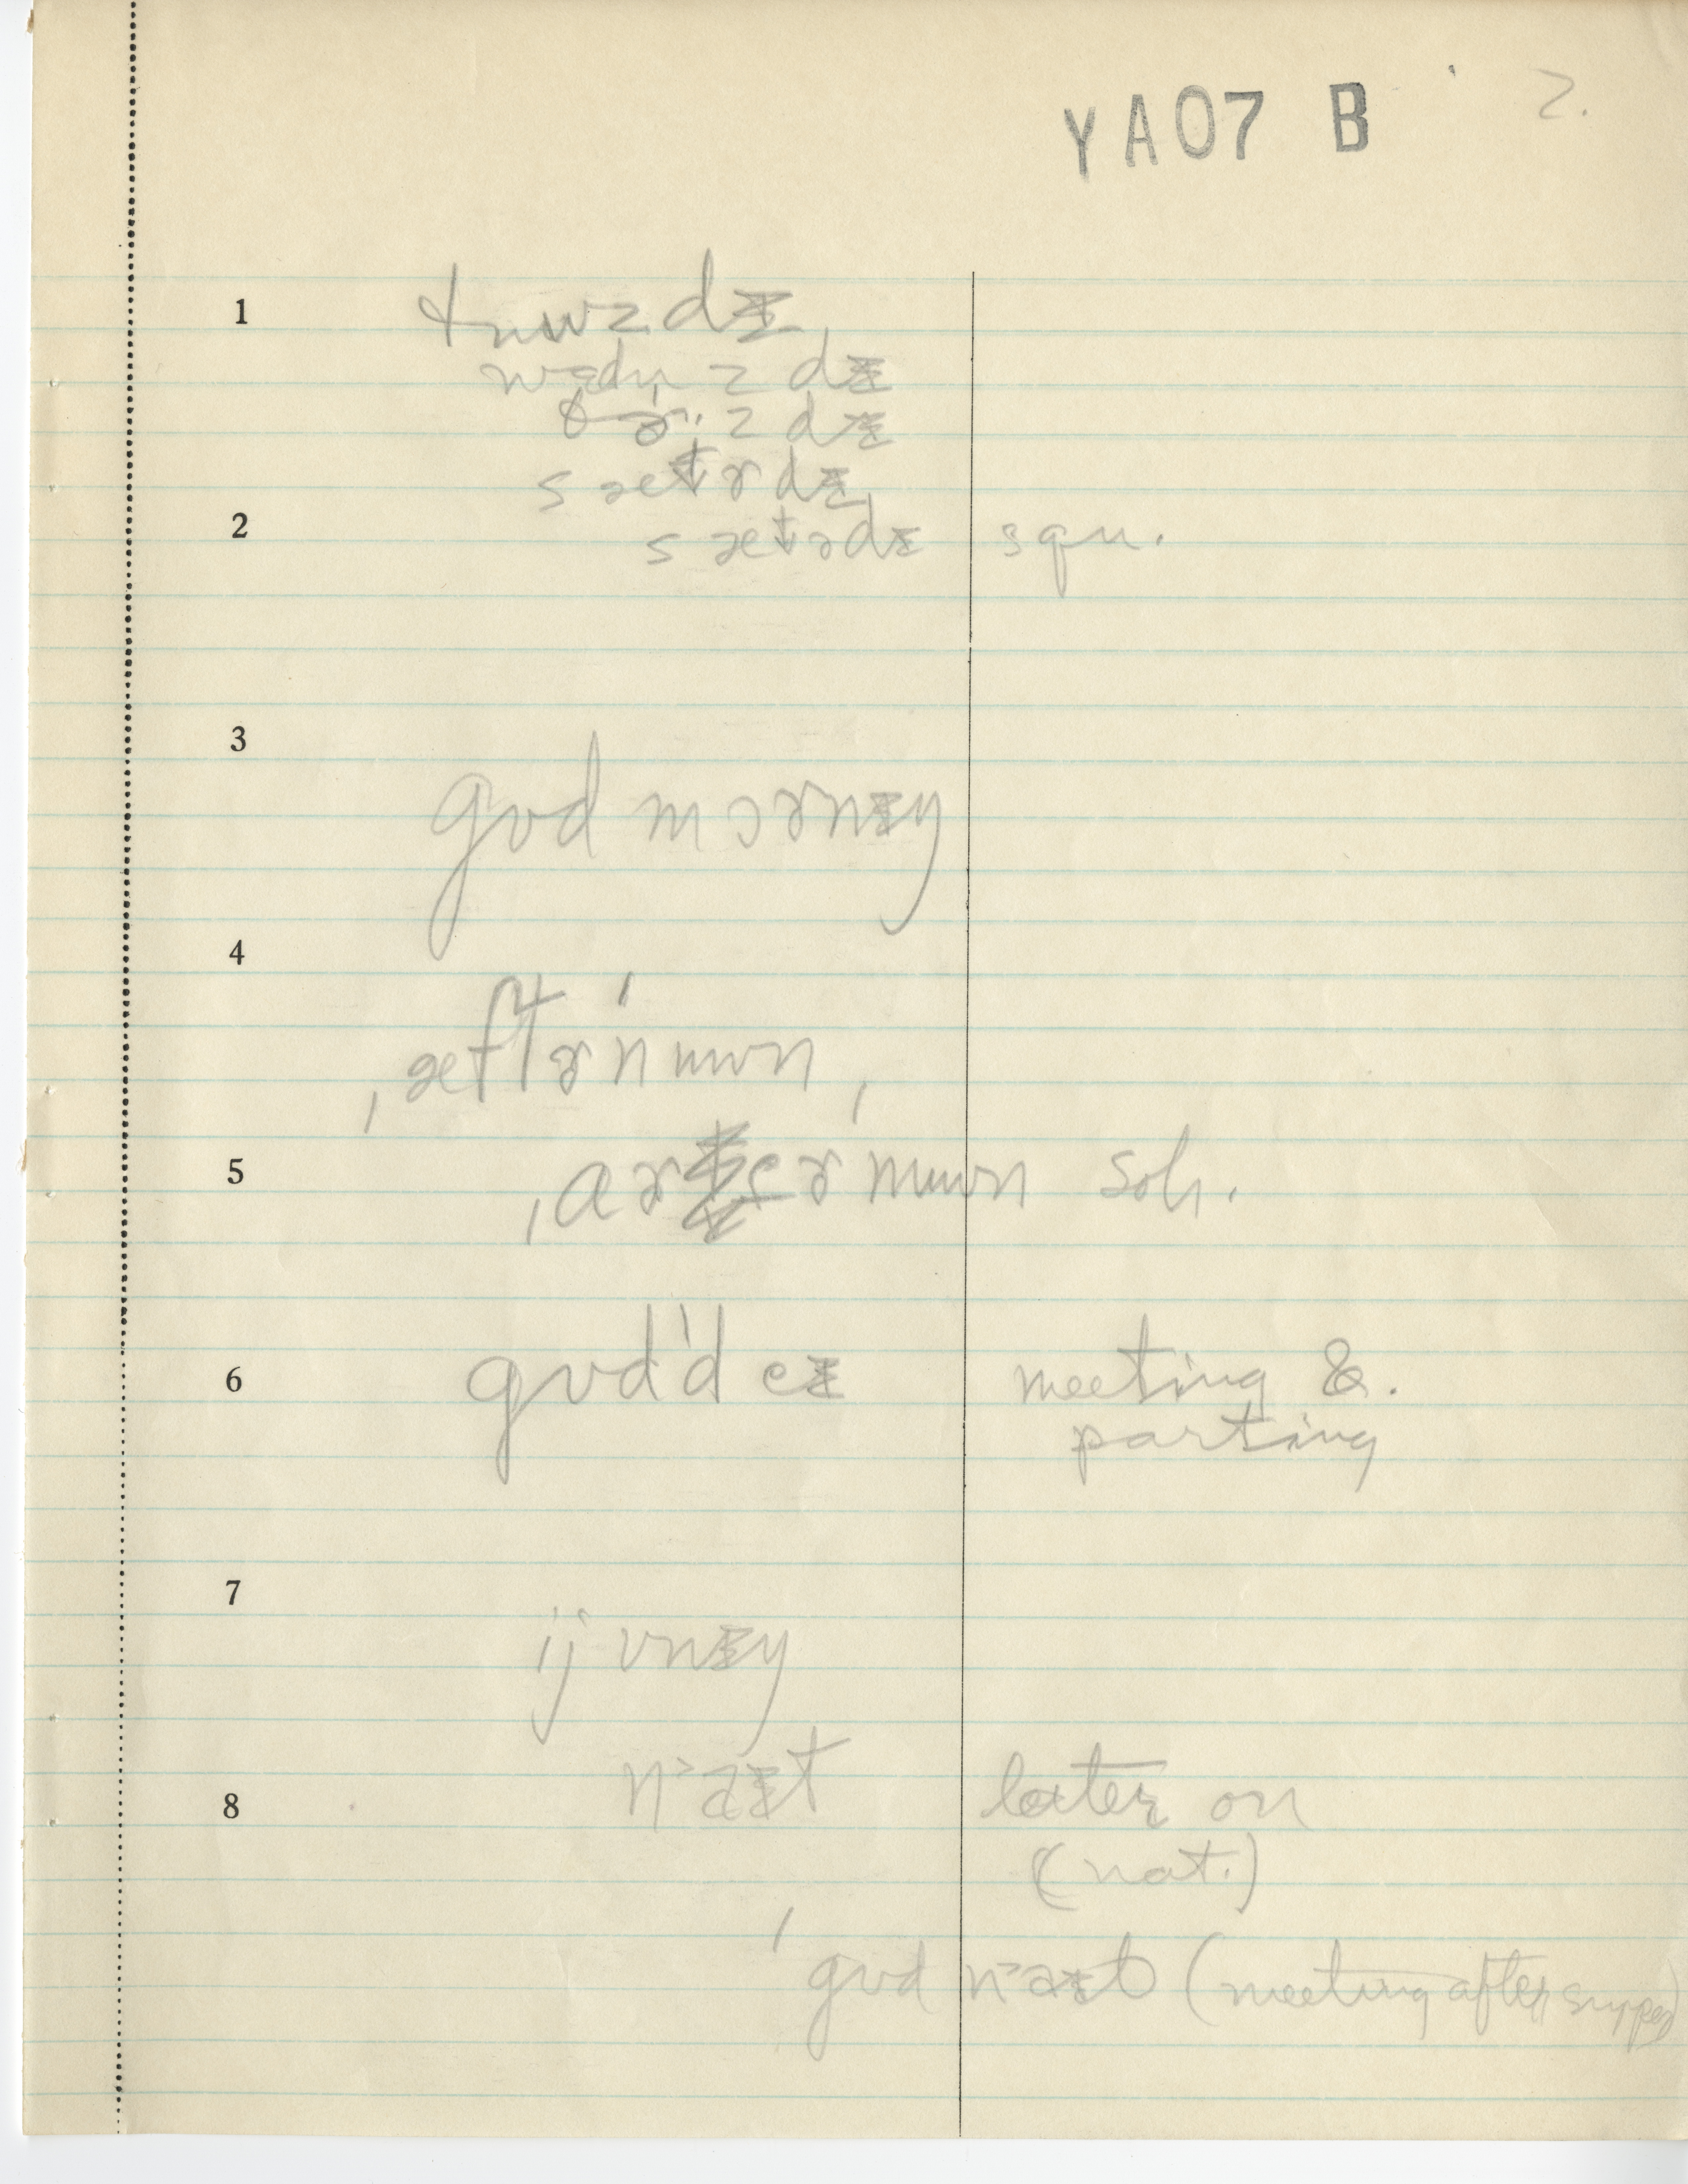 YA07 B 2.
1 tɪuwzdɪ
wɛdn̩zdɪ
θɚzdɪ
sætɚdɪ
2 sætɚdɪ squ.
3 gʊd mɔɚnɪŋ
4
ˌæftɚˈnuwn
5 soh.
6 gʊdˈd eɪ meeting &
parting
7
ijvnɪŋ
8 nˈaɪt later on
(nat.)
ˈgʊd nˈaɪt (meeting after supper)